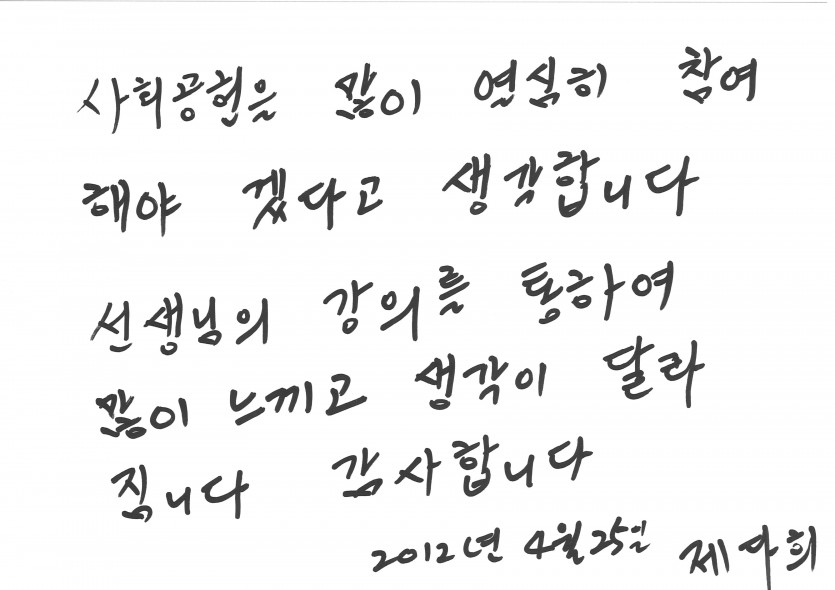 사회공헌을 많이 연심히 참여
해야 겠다고 생각합니다
선생님의 강의를 통하여
많이 느끼고 생각이 달라
짐니다 감사합니다
2012년 4월 25일